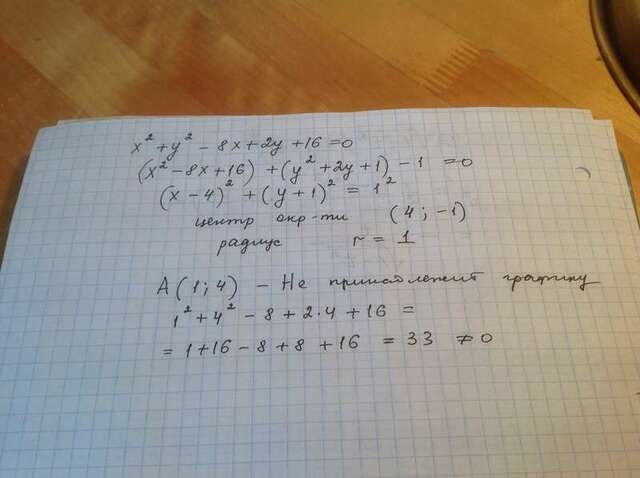 x² + y² - 8x + 2y + 16 = 0
(x² - 8x + 16) + (y² + 2y + 1) - 1 = 0
(x - 4)² + (y + 1)² = 1²
центр окр-ти (4; -1)
радиус r = 1
A(1; 4) - Не принадлежит графику
1² + 4² - 8 + 2·4 + 16 =
= 1 + 16 - 8 + 8 + 16 = 33 ≠ 0